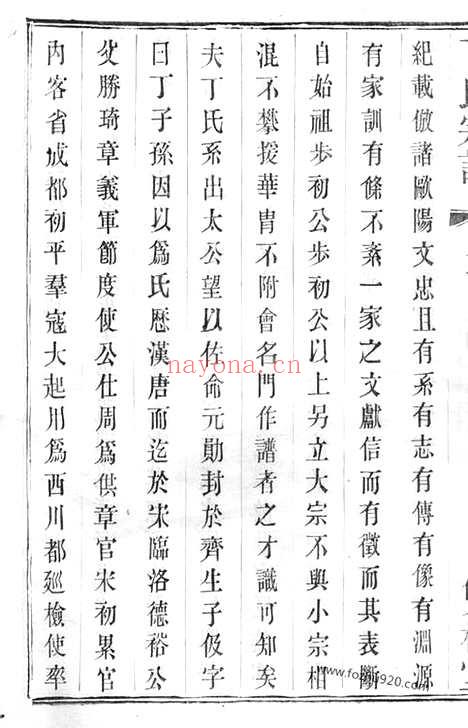 紀載倣諸歐陽文忠且有系有志有傳有像有淵源
有家訓有條不紊一家之文獻信而有徵而其表斷
自始祖步初公步初公以上另立大宗不與小宗相
混不攀援華胄不附會名門作譜者之才識可知矣
夫丁氏系出太公望以佐命元勛封於齊生子伋字
曰丁子孫因以爲氏歷漢唐而迄於宋臨洛德裕公
父勝琦章義軍節度使公仕周爲供章官宋初累官
內客省成都初平羣寇大起用爲西川都廵檢使率
nayona.cn